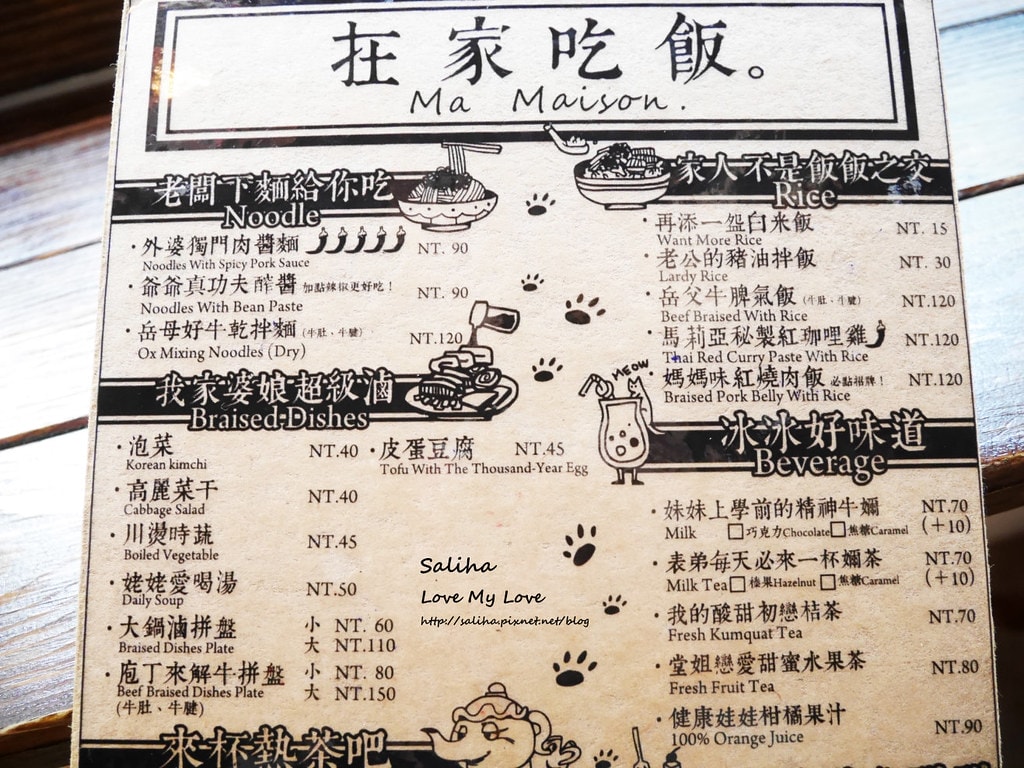 在家吃飯。
Ma Maison.
老闆下麵給你吃
Noodle
・外婆獨門肉醬麵 NT. 90
Noodles With Spicy Pork Sauce
・爺爺真功夫酢醬 加點辣椒更好吃! NT. 90
Noodles With Bean Paste
・岳母好牛乾拌麵 (牛肚、牛腱) NT.120
Ox Mixing Noodles (Dry)
我家婆娘超級滷
Braised Dishes
・泡菜 NT.40
Korean kimchi
・皮蛋豆腐 NT.45
Tofu With The Thousand-Year Egg
・高麗菜干 NT.40
Cabbage Salad
・川燙時蔬 NT.45
Boiled Vegetable
・姥姥愛喝湯 NT.50
Daily Soup
・大鍋滷拼盤 小 NT. 60
Braised Dishes Plate 大 NT.110
・庖丁來解牛拼盤 小 NT. 80
Beef Braised Dishes Plate 大 NT.150
(牛肚、牛腱)
來杯熱茶吧
家人不是飯飯之交
Rice
・再添一盌白米飯 NT. 15
Want More Rice
・老公的豬油拌飯 NT. 30
Lardy Rice
・岳父牛脾氣飯 (牛肚、牛腱) NT.120
Beef Braised With Rice
・馬莉亞秘製紅珈哩雞 NT.120
Thai Red Curry Paste With Rice
・媽媽味紅燒肉飯 必點招牌! NT.120
Braised Pork Belly With Rice
MEOW
冰冰好味道
Beverage
・妹妹上學前的精神牛嬭 NT.70
Milk □巧克力Chocolate □焦糖Caramel (+10)
・表弟每天必來一杯嬭茶 NT.70
Milk Tea □榛果Hazelnut □焦糖Caramel (+10)
・我的酸甜初戀桔茶 NT.70
Fresh Kumquat Tea
・堂姐戀愛甜蜜水果茶 NT.80
Fresh Fruit Tea
・健康娃娃柑橘果汁 NT.90
100% Orange Juice
Saliha
Love My Love
http://saliha.pixnet.net/blog